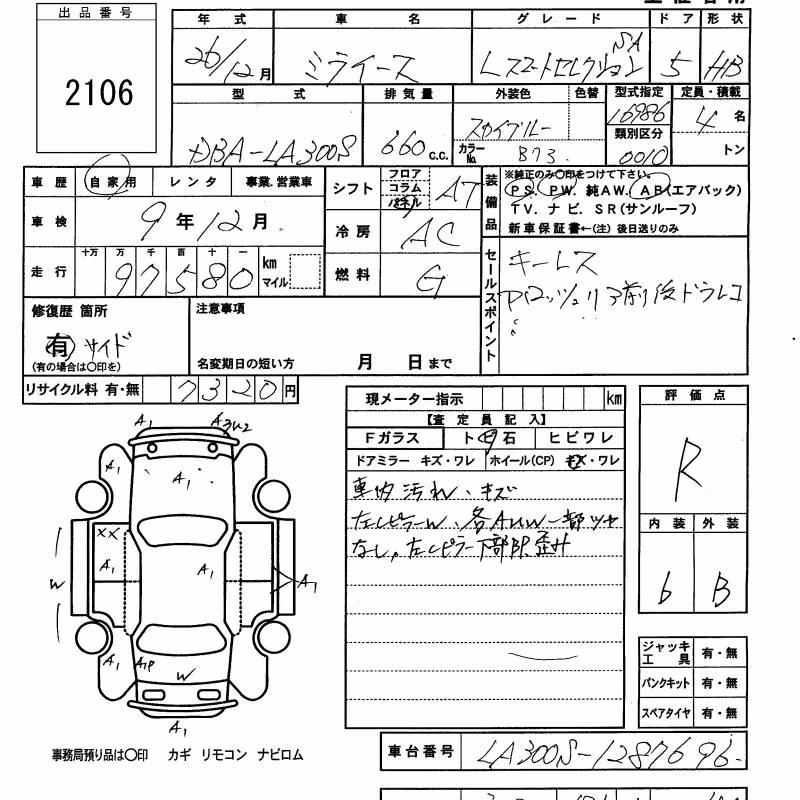 出品番号
2106
年式 車名 グレード ドア 形状
26/12月 ミライース Lスマートセレクション SA 5 HB
型式 排気量 外装色 色替 型式指定 定員・積載
DBA-LA300S 660 c.c. スカイブルー 16986 4名
カラーNo. B73 類別区分 0010 トン
車歴 自家用 レンタ 事業.営業車
シフト フロア コラム パネル AT
装備品 ※純正のみ○印をつけて下さい。
PS. PW. 純AW. AB(エアバック)
TV. ナビ. SR(サンルーフ)
新車保証書←(注)後日送りのみ
車検 9年12月
冷房 AC
走行 十万 万 千 百 十 一 km マイル
97580
燃料 G
セールスポイント キーレス
前後ドラレコ
修復歴 箇所
有 サイド
(有の場合は○印を)
注意事項
名変期日の短い方 月 日まで
リサイクル料 有・無 7320円
現メーター指示 km
【査定員記入】
Fガラス ト ビ 石 ヒビワレ
ドアミラー キズ・ワレ ホイール(CP) キズ・ワレ
車内汚れ、キズ
左Cピラーw、各AUW一部ツヤ
なし。左Cピラー下部歪み
評価点
R
内装 外装
6 B
A1 A3U2
A1 A1
A1
XX
A1 A1 A1
W
A1 A1P W
A1
ジャッキ工具 有・無
パンクキット 有・無
スペアタイヤ 有・無
事務局預り品は○印 カギ リモコン ナビロム
車台番号 LA300S-1287696